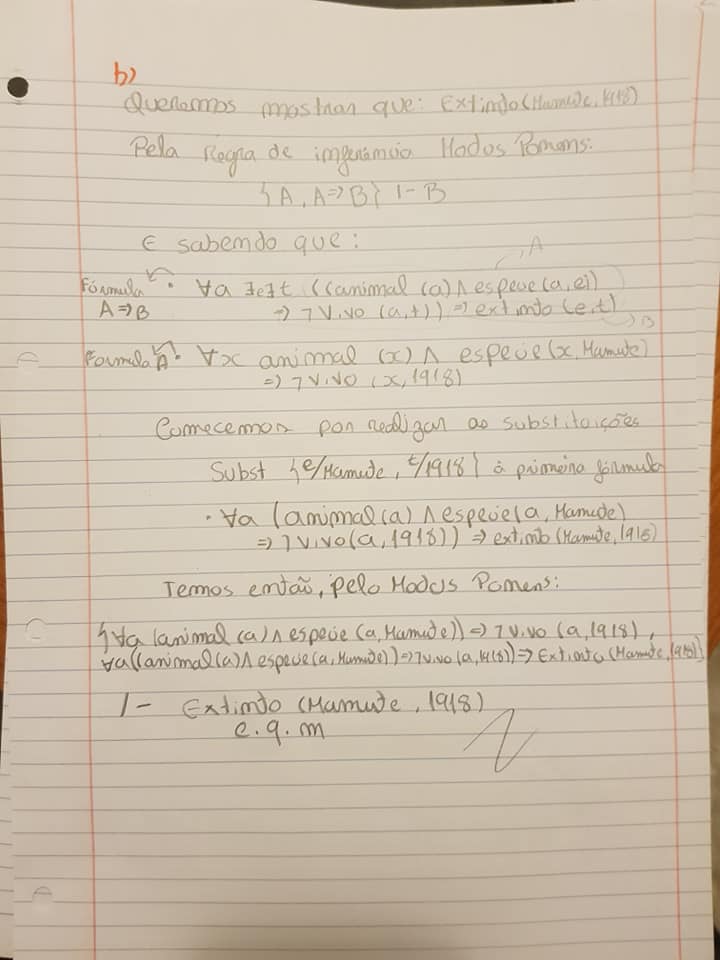 b)
Queremos mostrar que: Extinto(Mamute, 1918)
Pela Regra de inferência Modus Ponens:
{A, A⇒B} |- B
E sabendo que:
A
Fórmula • ∀a ∃e∃t ((animal (a) ∧ especie(a,e))
A⇒B ⇒ ¬Vivo (a,t)) ⇒ extinto(e,t)
B
Formula A • ∀x animal (x) ∧ especie(x, Mamute)
⇒ ¬Vivo (x,1918)
Comecemos por realizar as substituições
Subst {e/Mamute, t/1918} à primeira fórmula
• ∀a (animal(a) ∧ especie(a, Mamute)
⇒ ¬Vivo(a,1918)) ⇒ extinto(Mamute, 1918)
Temos então, pelo Modus Ponens:
{∀a (animal (a) ∧ especie (a, Mamute)) ⇒ ¬Vivo (a,1918),
∀a((animal(a) ∧ especie(a, Mamute)) ⇒ ¬Vivo (a,1918)) ⇒ Extinto (Mamute, 1918)}
|- Extinto (Mamute, 1918)
c.q.m